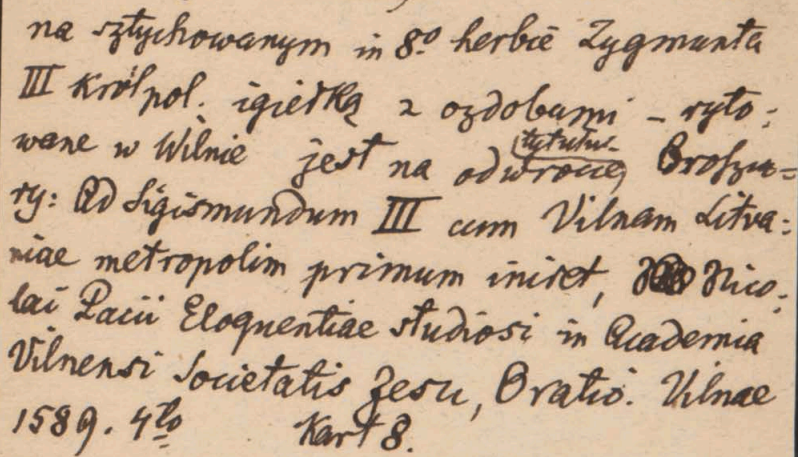 na sztychowanym in 8.o herbie Zygmunta
III król pol. igiełką z ozdobami – ryto:
wane w Wilnie jest na odwrocie tytułu Broszu=
ry: Ad Sigismundum III cum Vilnam Litva:
niae metropolim primum iniret, Nico:
lai Pacii Eloquentiae studiosi in Academia
Vilnensi Societatis Jesu, Oratio. Vilnae
1589. 4to Kart 8.